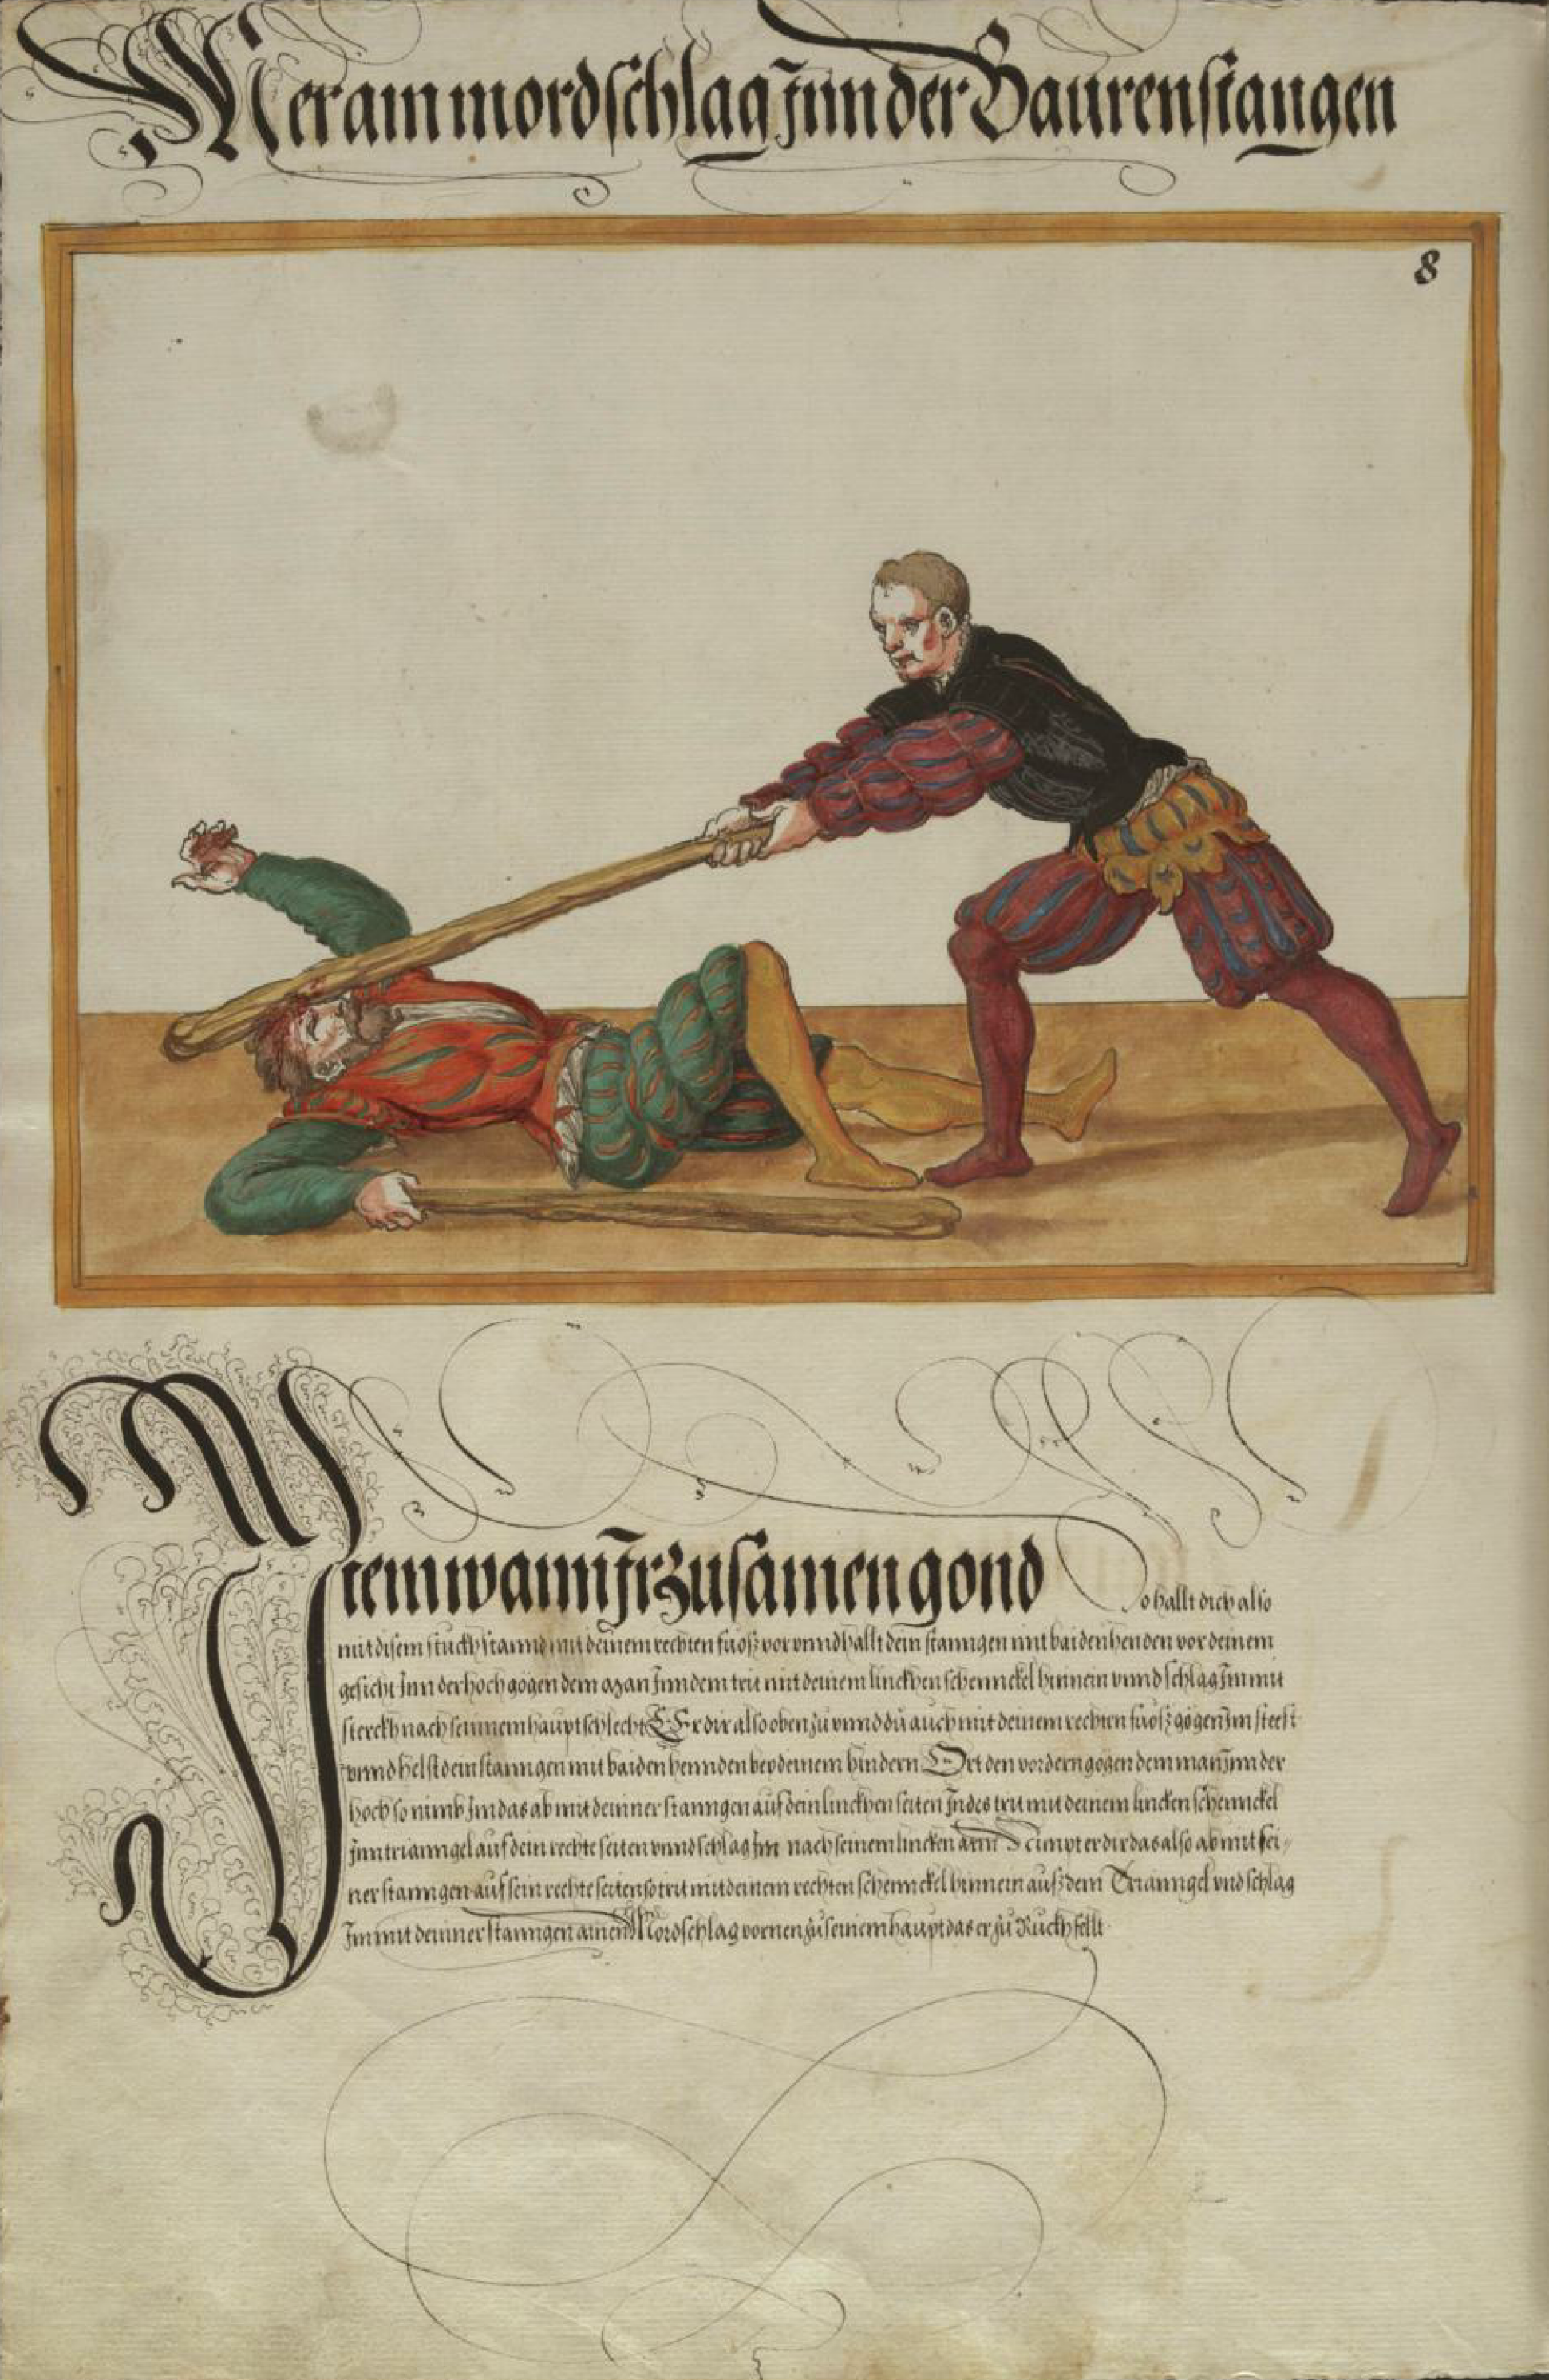 Mer ain mordschlag jnn der Baurenstangen
8
Item wann jr zusamen gond So hallt dich also
mit disem stuckh stannd mit deinem rechten fuosz vor vnnd hallt dein stanngen mit baiden henden vor deinem
gesicht Inn der hoch gögen dem man Inn dem trit mit deinem linckhen schennckel hinnein vnnd schlag Im mit
sterckh nach seinnem haupt schlecht Er dir also oben zů vnnd dů auch mit deinem rechten fuosz gögen Im steest
vnnd helst dein stanngen mit baiden hennden bey deinem hindern Ort den vordern gögen dem man Inn der
hoch so nimb Im das ab mit deinner stanngen auf dein linckhen seiten Indes trit mit deinem lincken schennckel
Inn trianngel auf dein rechte seiten vnnd schlag Im nach seinem lincken arm Nimpt er dir das also ab mit sei-
ner stanngen auf sein rechte seiten so trit mit deinem rechten schennckel hinnein ausz dem Trianngel vnd schlag
Im mit deinner stanngen ainen Mordschlag vornen zů seinem haupt das er zů Ruckh fellt